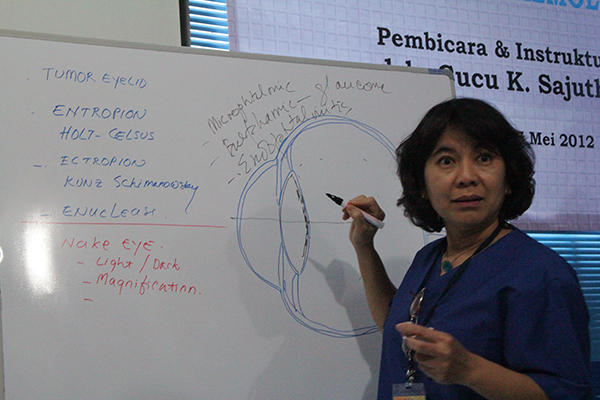 Pembicara & Instruktu
Cucu K. Sajuth
Mei 2012
TUMOR EYELID
ENTROPION
HOLT-CELSUS
- ECTROPION
KUNZ Schimanowsky
- ENUCLEASI
NAKE EYE.
- Light / Dark
- Magnification.
-
Microphtelmic
- Exopthalmic - glaucome
- Endophtalmitis